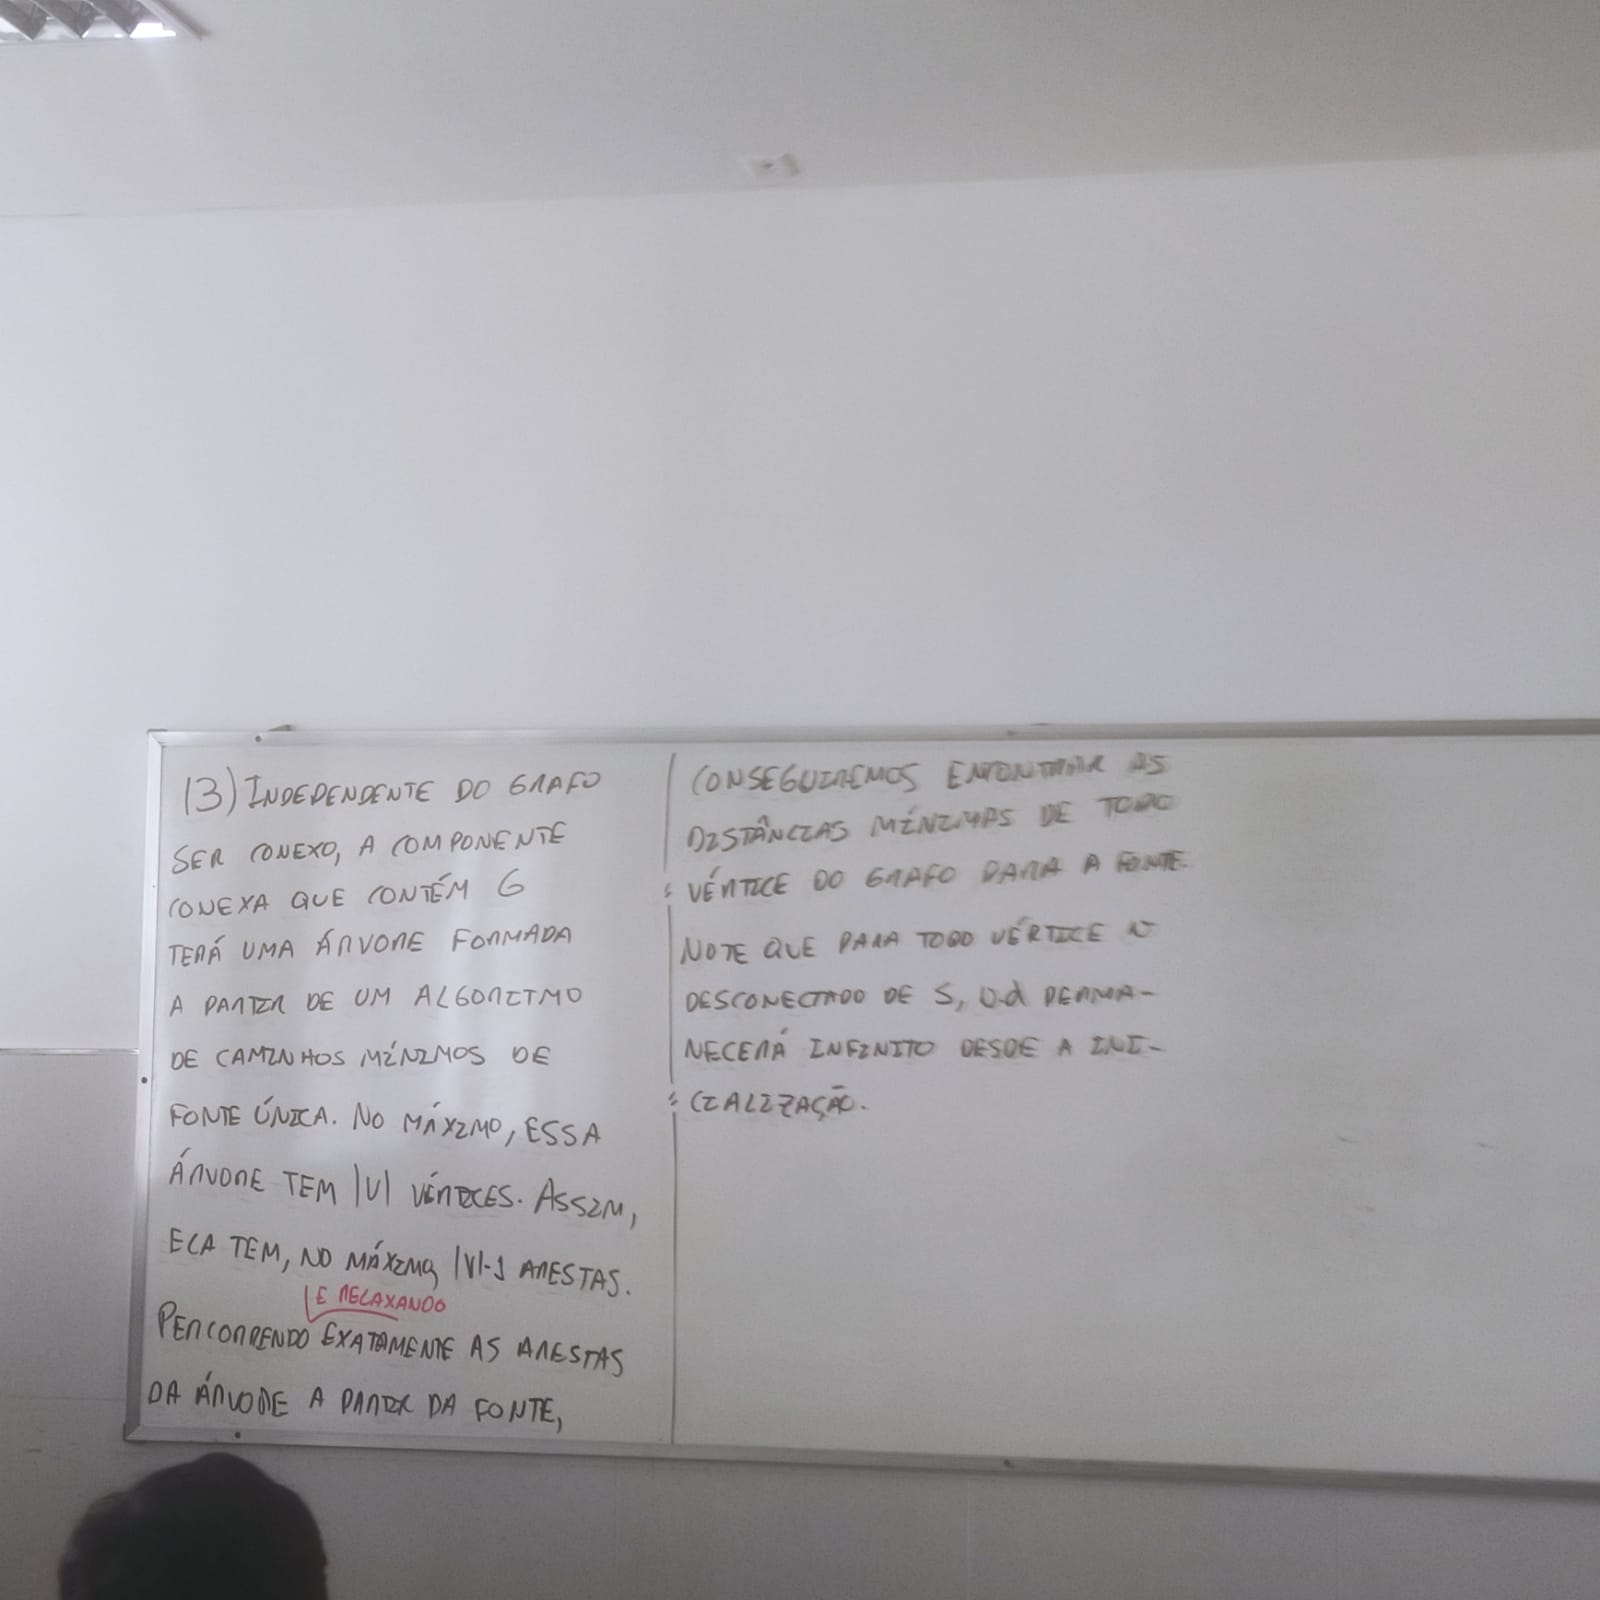 13) INDEPENDENTE DO GRAFO
SER CONEXO, A COMPONENTE
CONEXA QUE CONTÉM G
TERÁ UMA ÁRVORE FORMADA
A PARTIR DE UM ALGORITMO
DE CAMINHOS MÍNIMOS DE
FONTE ÚNICA. NO MÁXIMO, ESSA
ÁRVORE TEM |V| VÉRTICES. ASSIM,
ELA TEM, NO MÁXIMO, |V|-1 ARESTAS.
E RELAXANDO
PERCORRENDO EXATAMENTE AS ARESTAS
DA ÁRVORE A PARTIR DA FONTE,
CONSEGUIREMOS ENCONTRAR AS
DISTÂNCIAS MÍNIMAS DE TODO
VÉRTICE DO GRAFO PARA A FONTE.
NOTE QUE PARA TODO VÉRTICE v
DESCONECTADO DE S, v.d PERMA-
NECERÁ INFINITO DESDE A INI-
CIALIZAÇÃO.